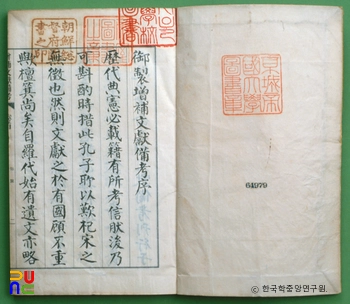 京城帝
國大學
圖書章
64979
御製增補文獻備考序
歷代典憲必載籍有所考信然後乃
可斟酌時措此孔子所以歎杞宋之
無徵也然則文獻之於有國顧不重
與檀箕尙矣自羅代始有遺文亦略
朝鮮總
督府圖
書之印
© 한국학중앙연구원